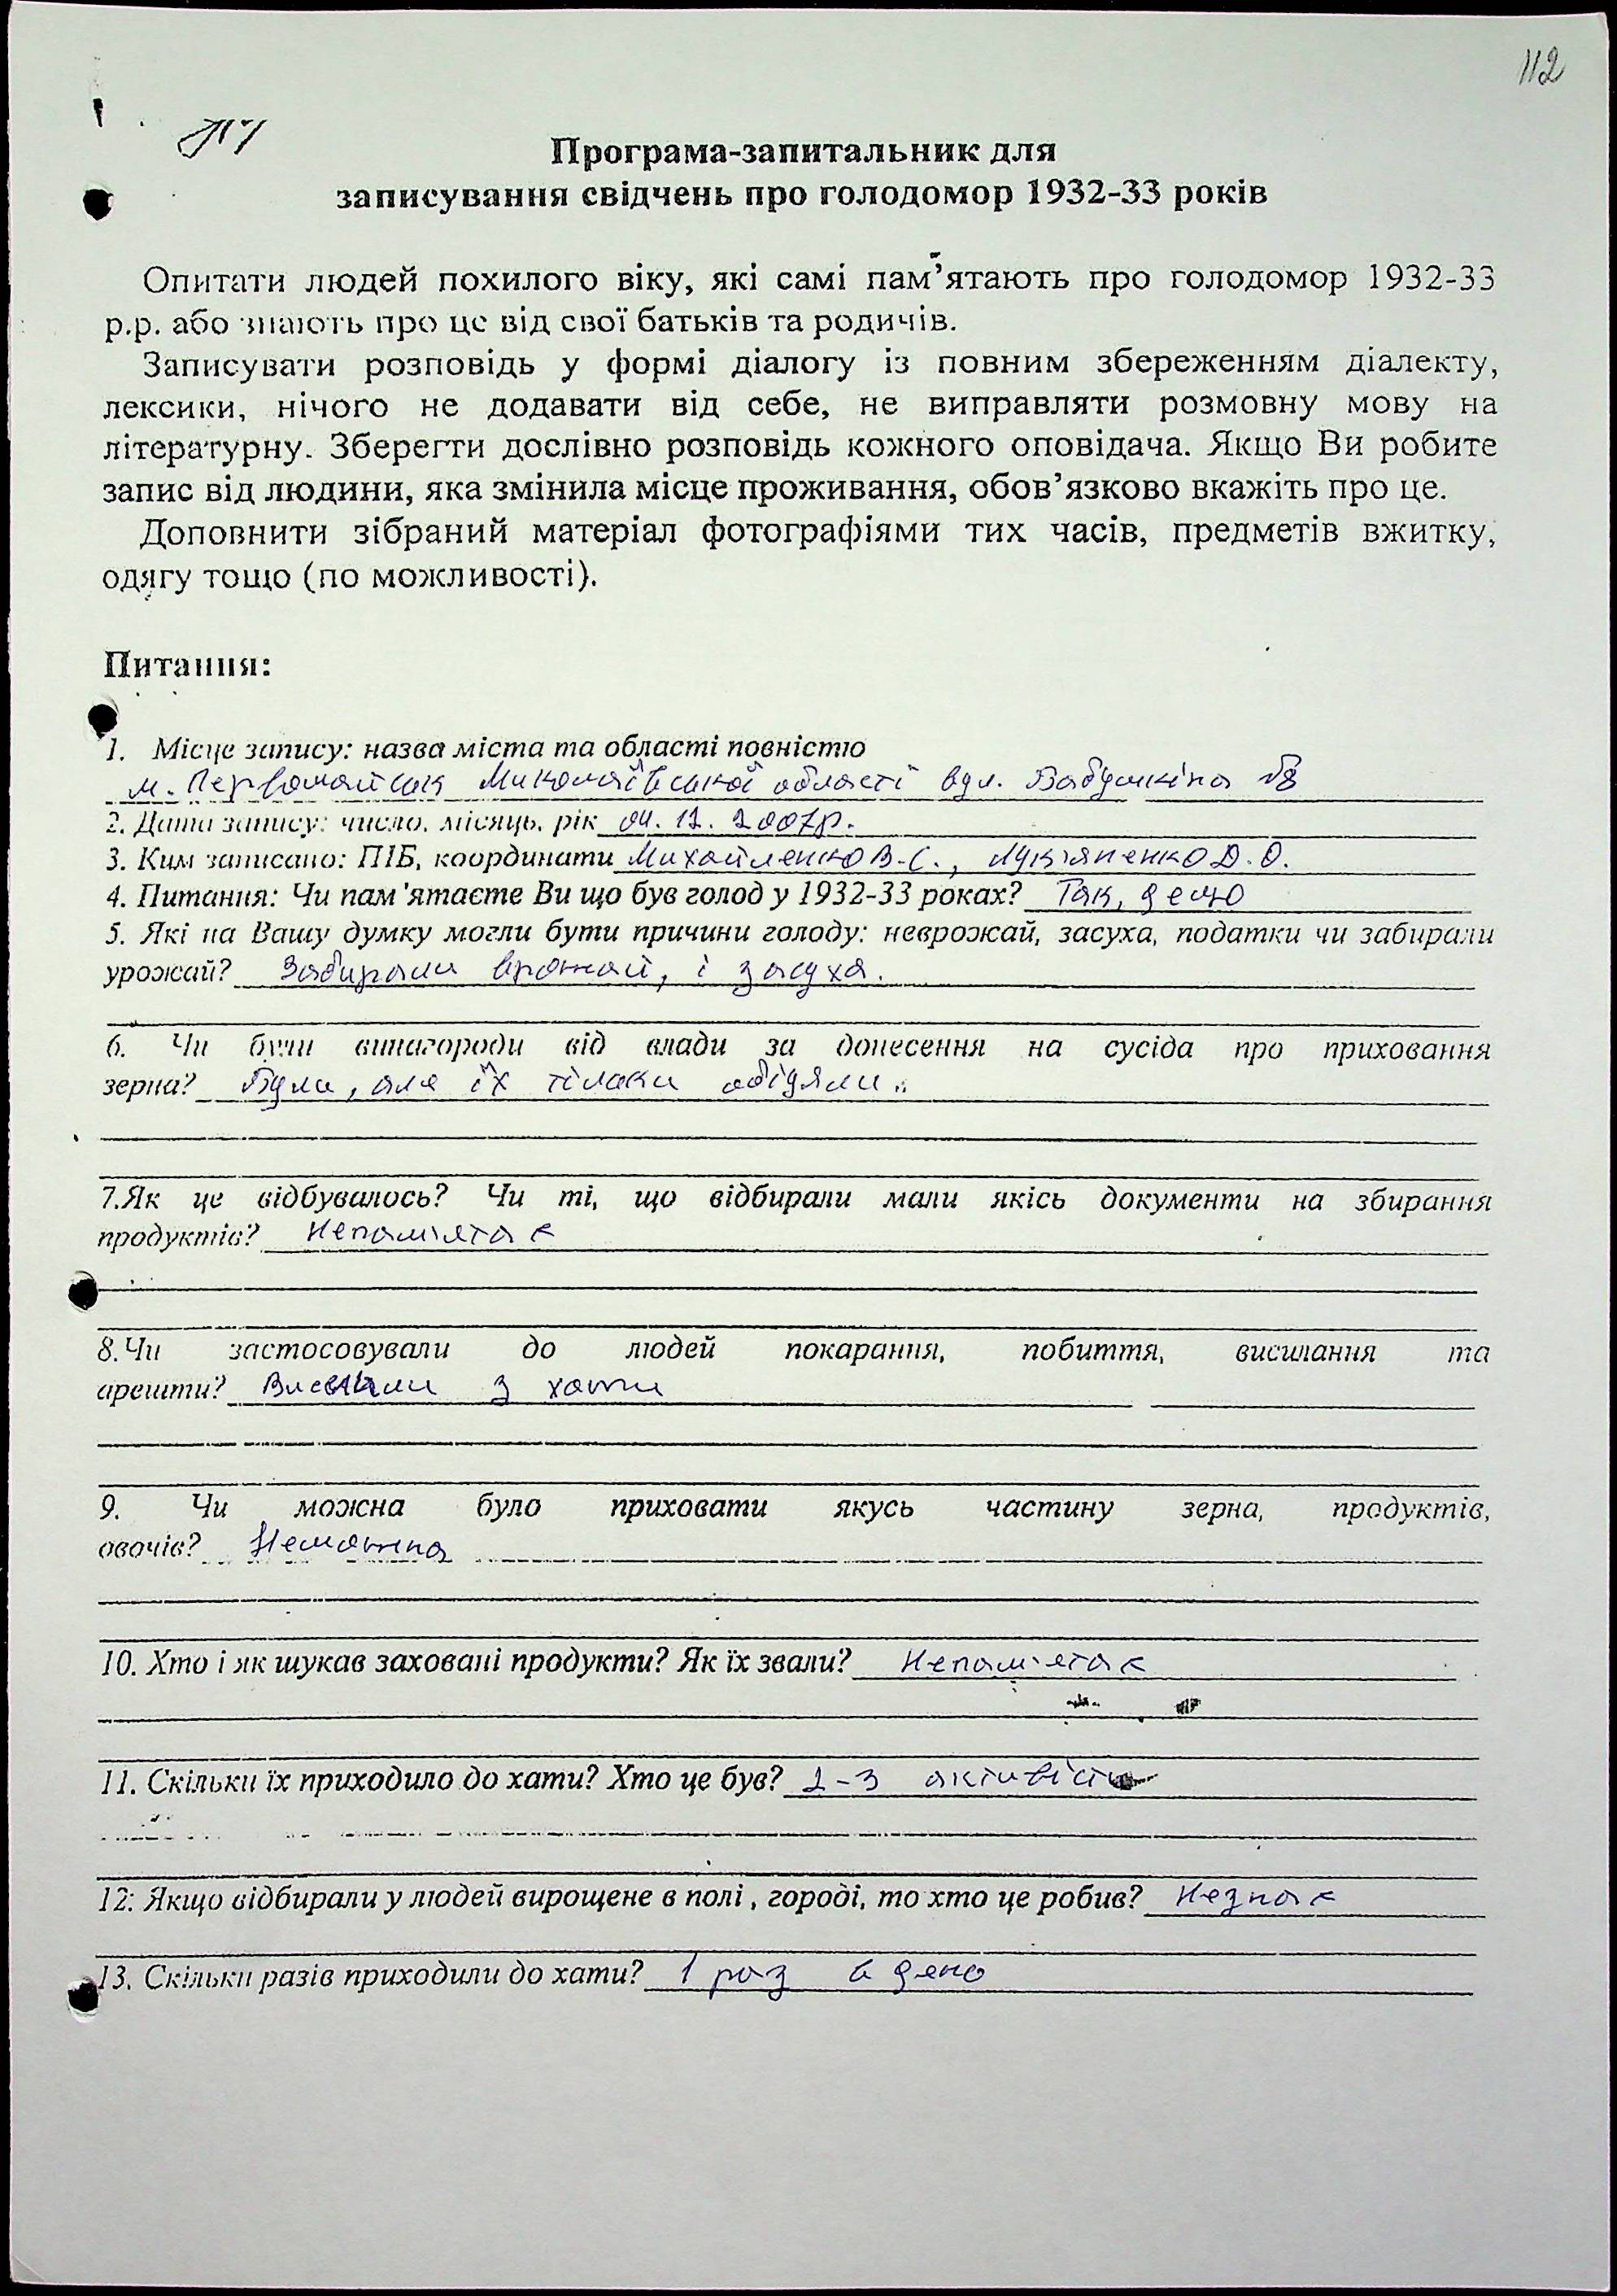 112
Програма-запитальник для
записування свідчень про голодомор 1932-33 років
Опитати людей похилого віку, які самі пам’ятають про голодомор 1932-33
р.р. або знають про це від свої батьків та родичів.
Записувати розповідь у формі діалогу із повним збереженням діалекту,
лексики, нічого не додавати від себе, не виправляти розмовну мову на
літературну. Зберегти дослівно розповідь кожного оповідача. Якщо Ви робите
запис від людини, яка змінила місце проживання, обов’язково вкажіть про це.
Доповнити зібраний матеріал фотографіями тих часів, предметів вжитку,
одягу тощо (по можливості).
Питання:
1. Місце запису: назва міста та області повністю
м. Первомайськ Миколаївської області вул. Бабушкіна
2. Дата запису: число, місяць, рік 04. 12. 2007р.
3. Ким записано: ПІБ, координати Михайленко В.С., Лук'яненко Д.О.
4. Питання: Чи пам'ятаєте Ви що був голод у 1932-33 роках? Так, дещо
5. Які на Вашу думку могли бути причини голоду: неврожай, засуха, податки чи забирали
урожай? Забирали врожай, і засуха.
6. Чи були винагороди від влади за донесення на сусіда про приховання
зерна? Були, але їх тілаки обіцяли.
7.Як це відбувалось? Чи ті, що відбирали мали якісь документи на збирання
продуктів? Непам'ятає
8.Чи застосовували до людей покарання, побиття, висилання та
арешти? з хати
9. Чи можна було приховати якусь частину зерна, продуктів,
овочів? Неможна
10. Хто і як шукав заховані продукти? Як їх звали? Непам'ятає
11. Скільки їх приходило до хати? Хто це був? 2-3 активісти
12. Якщо відбирали у людей вирощене в полі, городі, то хто це робив? Незнає
13. Скільки разів приходили до хати? 1 раз в день